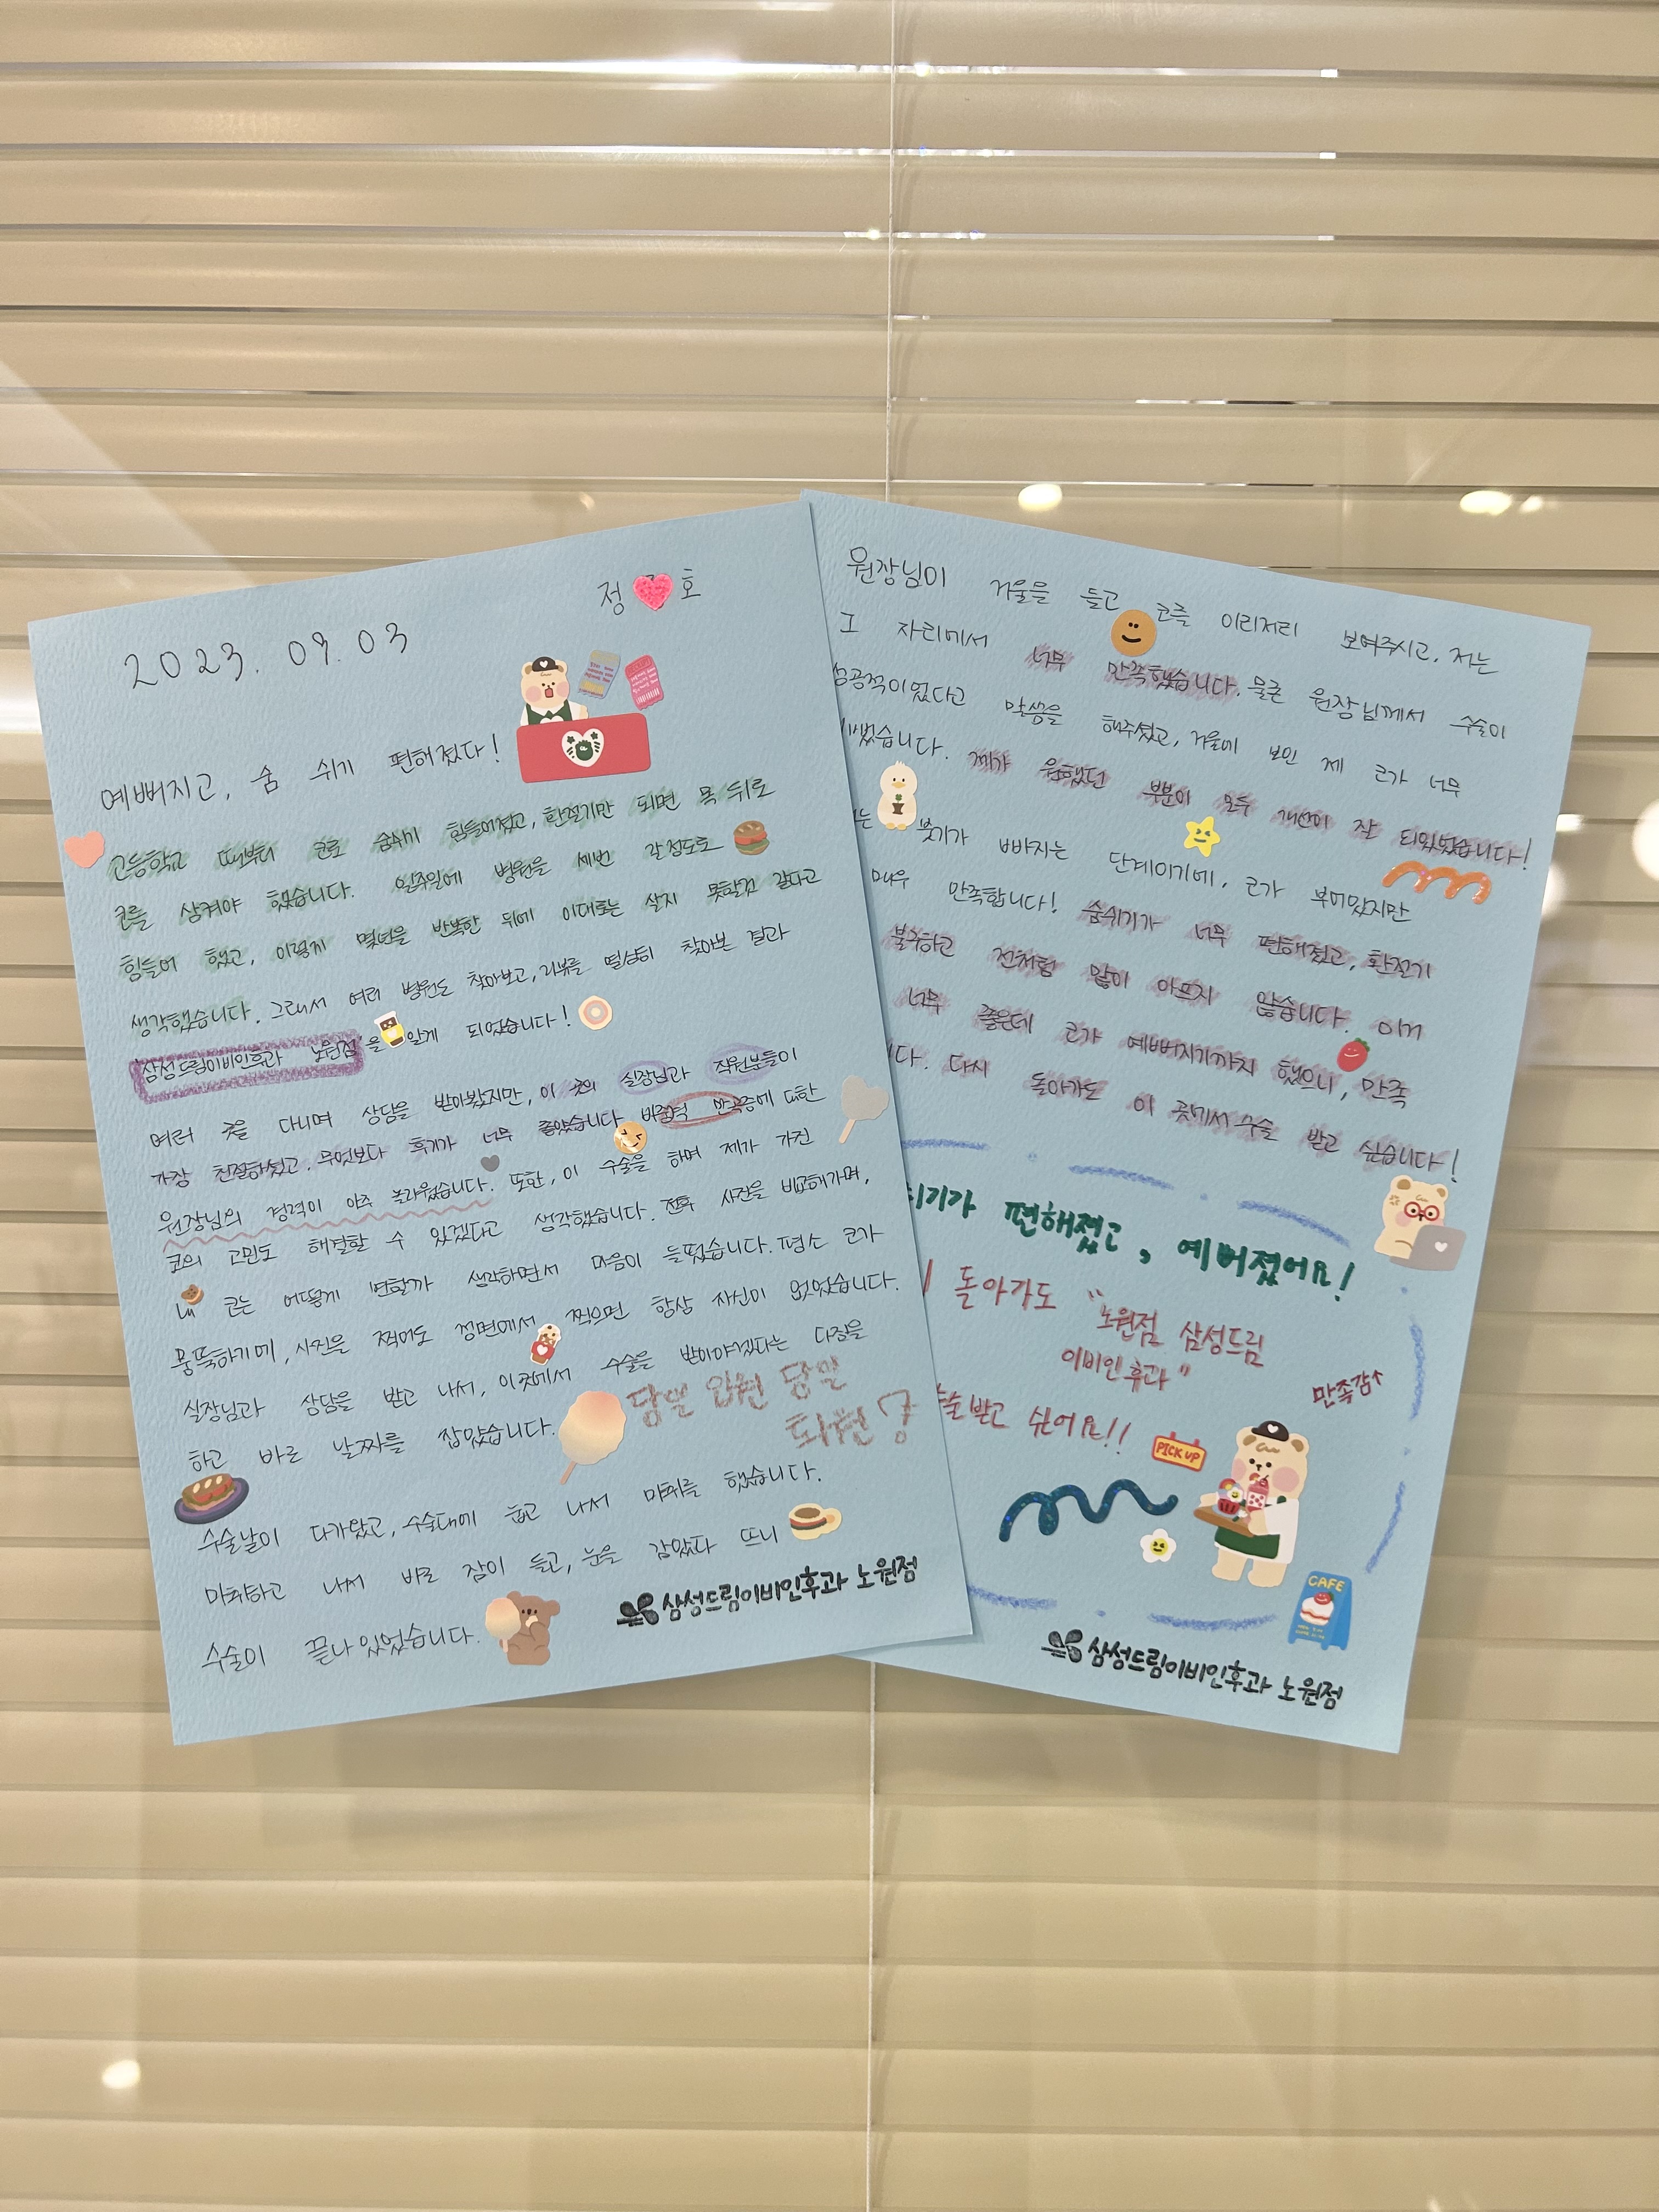 정 호
2023. 09. 03
예뻐지고, 숨 쉬기 편해졌다!
고등학교 때부터 코로 숨쉬기 힘들어졌고, 환절기만 되면 목 뒤로
코를 삼켜야 했습니다. 일주일에 병원을 세번 갈정도로
힘들어 했고, 이렇게 몇년을 반복한 뒤에 이대로는 살지 못할것 같다고
생각했습니다. 그래서 여러 병원도 찾아보고, 리뷰를 열심히 찾아본 결과
'삼성드림이비인후과 노원점'을 알게 되었습니다!
여러 곳을 다니며 상담을 받아봤지만, 이 곳의 실장님과 직원분들이
가장 친절하셨고, 무엇보다 후기가 너무 좋았습니다 비중격 만곡증에 대한
원장님의 경력이 아주 놀라웠습니다. 또한, 이 수술을 하며 제가 가진
코의 고민도 해결할 수 있겠다고 생각했습니다. 전후 사진을 비교해가며,
내 코는 어떻게 변할까 생각하면서 마음이 들떴습니다. 평소 코가
뭉뚝하기에, 사진을 찍어도 정면에서 찍으면 항상 자신이 없었습니다.
실장님과 상담을 받고 나서, 이곳에서 수술을 받아야겠다는 다짐을
하고 바로 날짜를 잡았습니다.
당일 입원 당일
퇴원
수술날이 다가왔고, 수술대에 눕고 나서 마취를 했습니다.
마취하고 나서 바로 잠이 들고, 눈을 감았다 뜨니
수술이 끝나있었습니다.
삼성드림이비인후과 노원점
원장님이 거울을 들고 코를 이리저리 보여주시고, 저는
그 자리에서 너무 만족했습니다. 물론 원장님께서 수술이
성공적이었다고 말씀을 해주셨고, 거울에 보인 제 코가 너무
습니다. 제가 원했던 부분이 모두 개선이 잘 되있었습니다!
는 붓기가 빠지는 단계이기에, 코가 부어있지만
매우 만족합니다! 숨쉬기가 너무 편해졌고, 환절기
불구하고 전처럼 많이 아프지 않습니다. 이거
너무 좋은데 코가 예뻐지기까지 했으니, 만족
다. 다시 돌아가도 이 곳에서 수술 받고 싶습니다!
쉬기가 편해졌고, 예뻐졌어요!
돌아가도 "노원점 삼성드림
이비인후과"
만족감↑
수술받고 싶어요!!
PICK UP
CAFE
삼성드림이비인후과 노원점